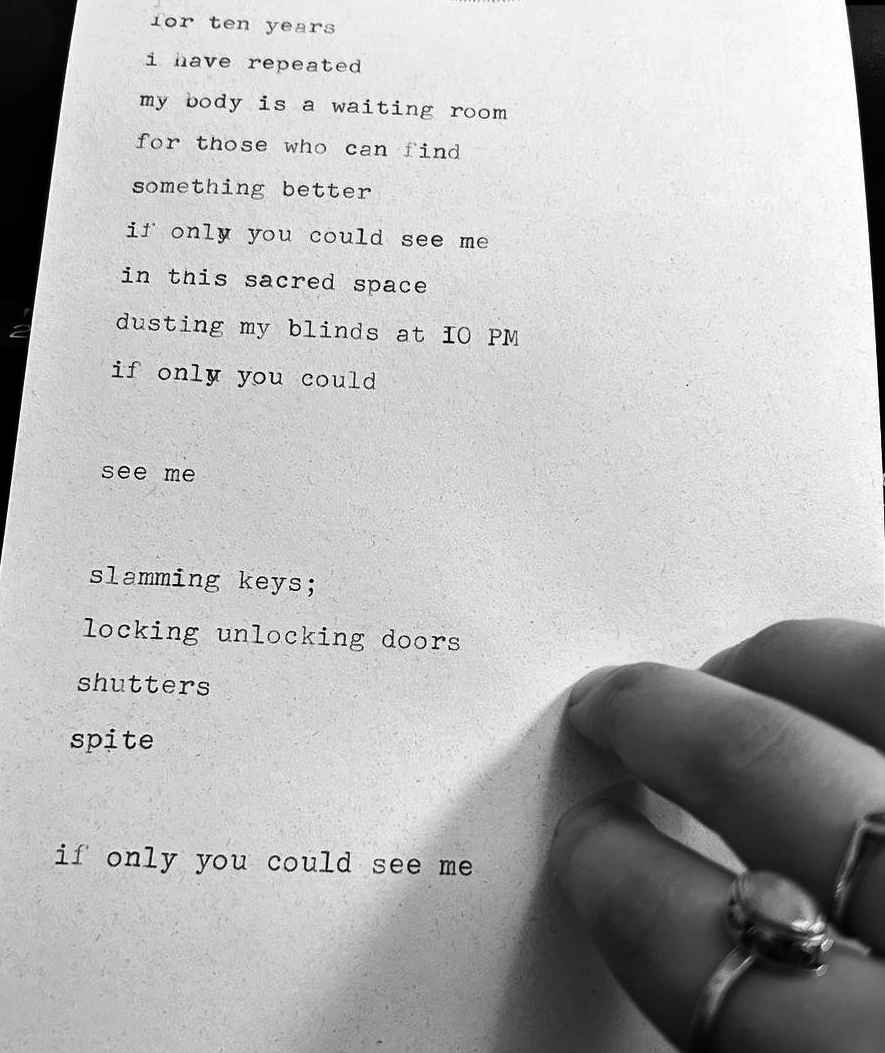 for ten years
i have repeated
my body is a waiting room
for those who can find
something better
if only you could see me
in this sacred space
dusting my blinds at IO PM
if only you could
see me
slamming keys;
locking unlocking doors
shutters
spite
if only you could see me